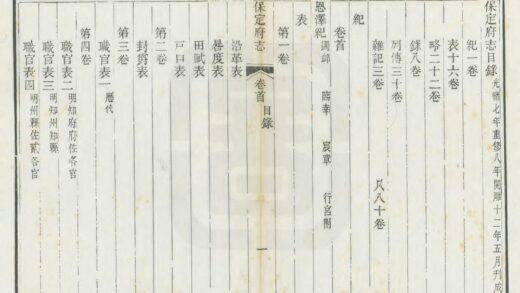 保定府志目錄 光緒七年重修八年開雕十二年五月刊成
紀一卷
表十六卷
略二十二卷
錄八卷
列傳三十卷
雜記三卷 凡八十卷
紀
卷首
恩澤紀 蠲卹 臨幸 宸章 行宮附
表
第一卷
保定府志 卷首 目錄 一
沿革表
晷度表
田賦表
戶口表
第二卷
封爵表
第三卷
職官表一 歷代
第四卷
職官表二 明知府府佐各官
職官表三 明知州知縣
職官表四 明州縣佐貳各官